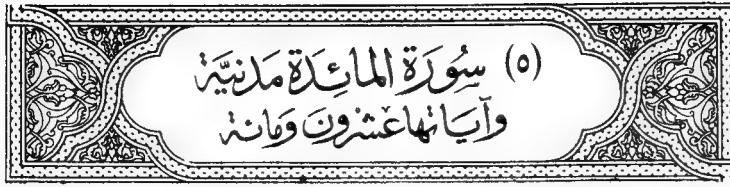 (٥) سُورَة المائِدَة مَدنيَّة
وآيَاتهَا عَشرُونَ وَمائة